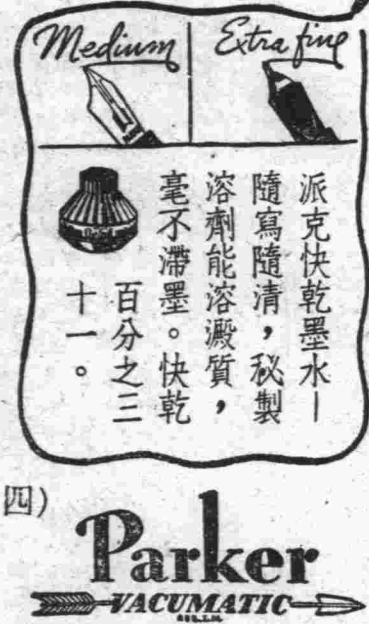 Medium
Extra fine
派克快乾墨水—
隨寫隨清，秘製
溶劑能溶澱質，
毫不滯墨。快乾
百分之三
十一。
四）
Parker
VACUMATIC